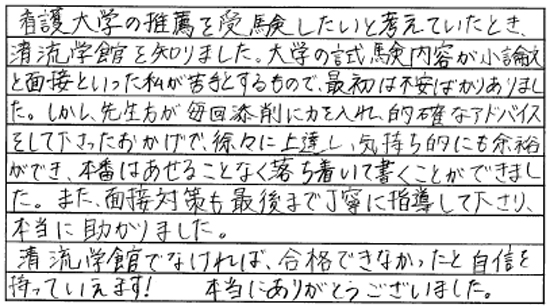 看護大学の推薦を受験したいと考えていたとき、
清流学館を知りました。大学の試験内容が小論文
と面接といった私が苦手とするもので、最初は不安ばかりありまし
た。しかし、先生方が毎回添削に力を入れ、的確なアドバイス
をして下さったおかげで、徐々に上達し、気持ち的にも余裕
ができ、本番はあせることなく落ち着いて書くことができまし
た。また、面接対策も最後まで丁寧に指導して下さり、
本当に助かりました。
清流学館でなければ、合格できなかったと自信を
持っていえます! 本当にありがとうございました。